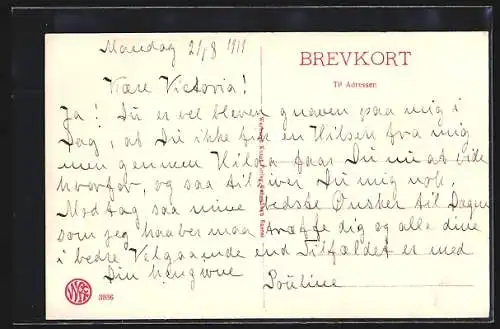 Mandag 21/8 1911
BREVKORT
Til Adressen
Kære Victoria!
Ja! Du er vel bleven gnaven paa mig i
Dag, at Du ikke fik en Hilsen fra mig
men gennem Hilda faar Du nu at vide
hvorfor, og saa tilgiver Du mig nok.
Modtag saa mine bedste Ønsker til Dagen
som jeg haaber maa træffe dig og alle dine
i bedre Velgaaende end Tilfældet er med
Din hengivne Pouline
3936